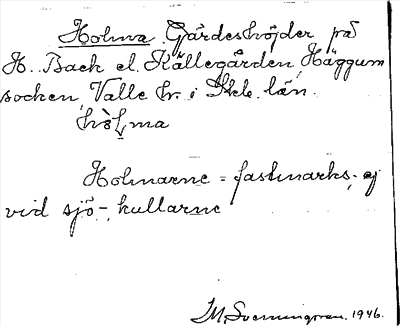 Holma Gärdeshöjder på
H. Back el. Källegården, Häggum
socken, Valle hr. i Skb. län.
hòlma
Holmarne = fastmarks-, ej
vid sjö-, kullarne
M. Svenningson. 1946.